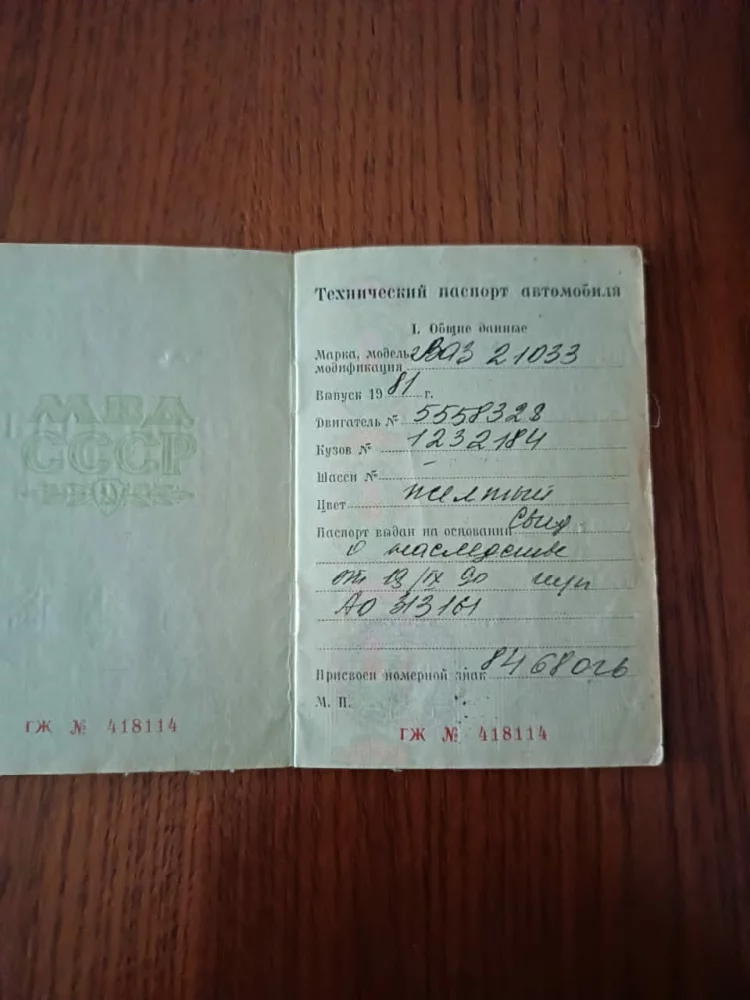 МВД
СССР
ГЖ № 418114
Технический паспорт автомобиля
I. Общие данные
Марка, модель, ВАЗ 21033
модификация
Выпуск 1981 г.
Двигатель № 5558328
Кузов № 1232184
Шасси № -
Цвет желтый
Паспорт выдан на основании Свид
о наследстве
от 19/IX 90
АО 313161
Присвоен номерной знак 8468 ОГБ
М. П.
ГЖ № 418114